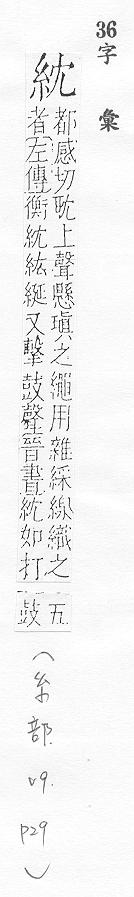 36字彙
紞
都感切耽上聲懸瑱之繩用雜綵線織之
者左傳衡紞紘綖又擊鼓聲晉書紞如打
五
鼓
(糸部 v9. p29)